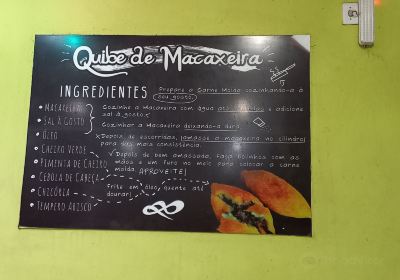 Quibe de Macaxeira
INGREDIENTES
Prepare a Carne Moída cozinhando-a
seu gosto.
• MACAXEIRA
• SAL À GOSTO
• ÓLEO
• CHEIRO VERDE
• PIMENTA DE CHEIRO
• CEBOLA DE CABEÇA
• CHICÓRIA
• TEMPERO ARISCO
Cozinhe a Macaxeira com água até e adicione
sal à gosto.
Cozinhar a Macaxeira deixando-a dura.
Depois de escorridas, passe a macaxeira no cilindro
para dar mais consistência.
Depois de bem amassada, Faça bolinhos com as
mãos e um furo no meio para colocar a carne
moída. APROVEITE!
Frite em óleo quente até
dourar!